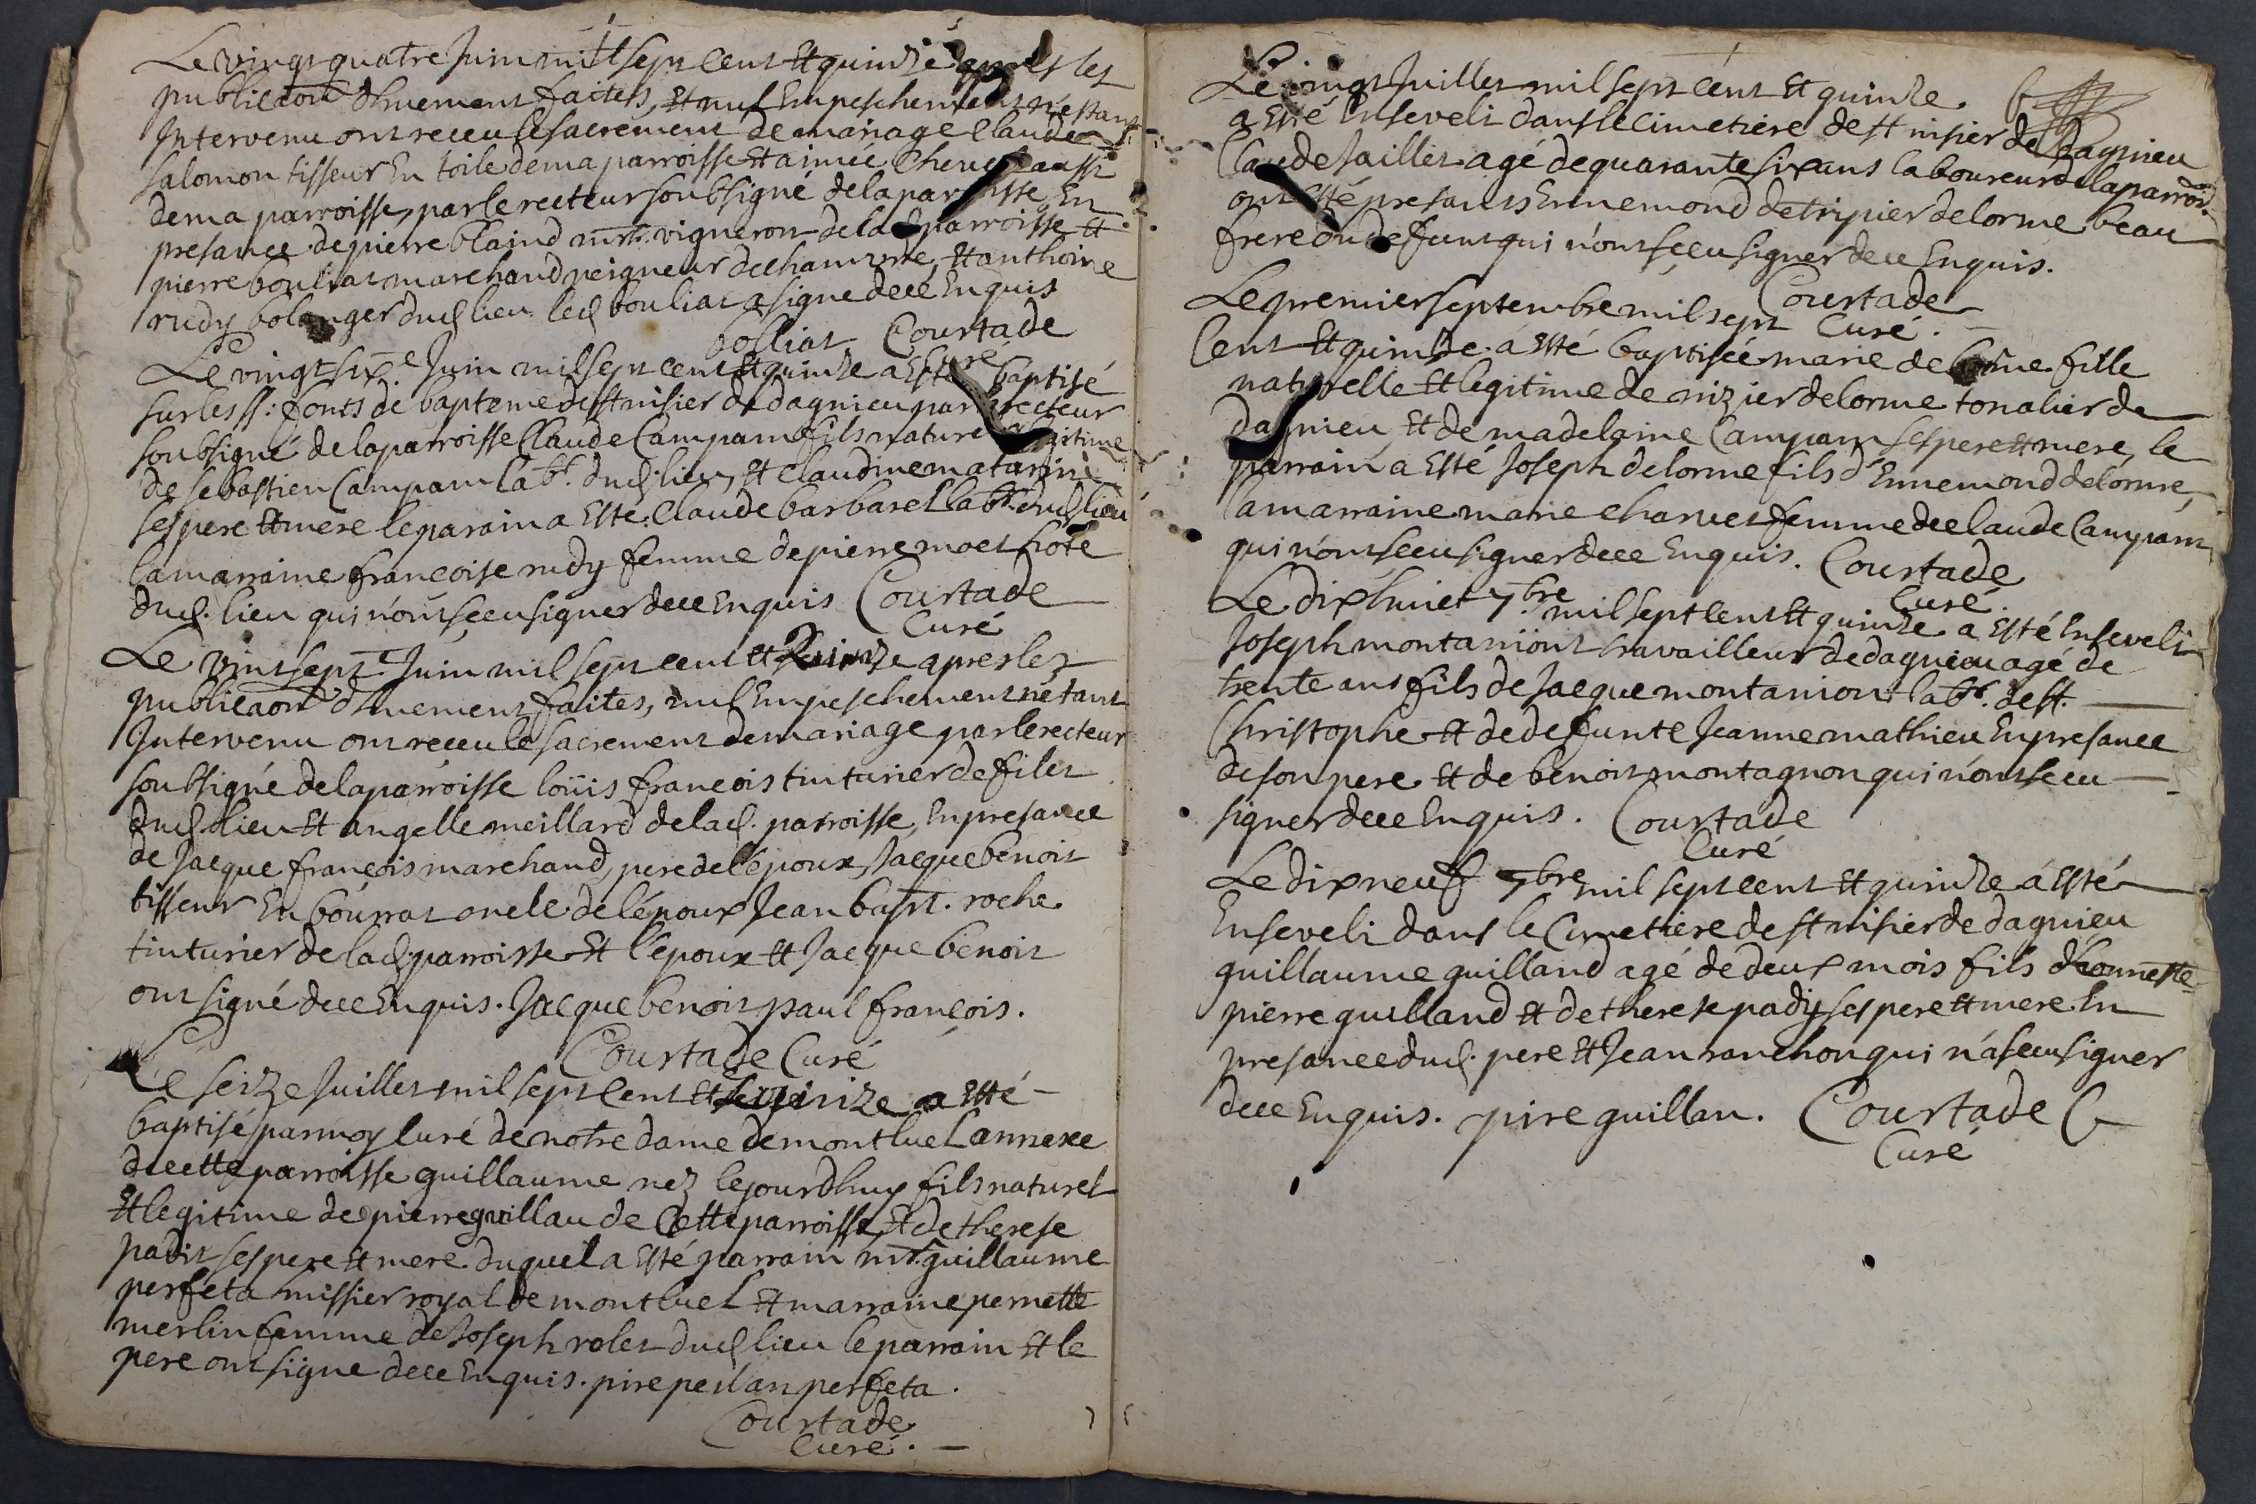 Le vingt quatre Juin mil sept cent et quinze apres les
publicaons dhuement faites, et nul Empeschement n'estant
Intervenu ont receu le sacrement de mariage Claude
Salomon tisseur En toile de ma parroisse et aimée aussi
de ma parroisse, par le recteur soubsigné de la parroisse, En
presance de pierre blaind vigneron de lad parroisse et
pierre bouliat marchand peigneur de chanvre, et anthoine
rudy bolanger dud lieu led bouliat a signe de ce Enquis
bolliat Courtade
Curé
Le vingt six.e Juin mil sept cent et quinze a Esté baptisé
sur les ss: fonts de bapteme de st nisier de dagnieu par recteur
soubsigné de la parroisse Claude Campam fils naturel legitime
de sebastien Campam lab.r dud. lieu, et Claudine matanin
ses pere et mere le parain a Esté Claude barbaret lab.r dud lieu
la marraine françoise rudy femme de pierre moet hote
dud. lieu qui n'ont sceu signer de ce Enquis Courtade
Curé
Le vint sept Juin mil sept cent et quinze apres les
publicaons dhuement faites, nul Empeschement nétant
Intervenu ont receu le sacrement de mariage par le recteur
soubsigné de la parroisse loüis francois tinturier de filet
dud. lieu et angelle meillard de lad. parroisse, En presance
de Jacque francois marchand, pere de lépoux, Jacque benoit
tisseur En bourrat oncle de lépoux Jean bapt. roche
tinturier de lad. parroisse et l'époux et Jacque benoit
ont signé de ce Enquis. Jacque benoit paul francois.
Courtade Curé
Le seize Juillet mil sept Cent et quinize a Esté
baptisé par moy Curé de notre dame de montluel annexe
de cette parroisse guillaume nez le jourdhuy fils naturel
et legitime de pierre guillau de Cette parroisse, et de therese
padit ses pere et mere duquel a Esté parrain mr. guillaume
perfeta huissier royal de montluel et marraine pernette
merlin femme de Joseph rolet dud lieu le parrain et le
pere ont signe de ce Enquis. pire perfeta.
Courtade
Curé.
Le vingt Juillet mil sept Cent et quinze.
a Esté Enseveli dans le Cimetiere de st nisier de dagnieu
Claude Jaillet agé de quarante six ans laboureur de la parroi.
ont Esté presants Ennemond detripier delorme beau
frere du defunt qui n'ont sceu signer de ce Enquis.
Courtade
Curé.
Le premier septembre mil sept
Cent et quinze a Esté baptisée marie delorme fille
naturelle et legitime de nizier delorme tonalier de
dagnieu et de madelaine Campam ses pere et mere, le
parrain a Esté Joseph delorme fils d'Ennemond delorme,
la marraine marie charvet femme de claude Campam
qui n'ont sceu signer de ce Enquis. Courtade
Curé.
Le dixhuict 7bre mil sept cent et quinze a Esté Enseveli
Joseph montaniont travailleur de dagnieu agé de
trente ans fils de Jacque montanion lab.r de st.
Christophe et de defunte Jeanne mathieu En presance
de son pere et de benoit montagnon qui n'ont sceu
signer de ce Enquis. Courtade
Curé
Le dixneuf 7bre mil sept cent et quinze a Esté
Enseveli dans le Cimetiere de st nisier de dagnieu
guillaume guilland agé de deux mois fils d'honneste
pierre guilland et de therese padiy ses pere et mere En
presance dud. pere et Jean ranchon qui n'a sceu signer
de ce Enquis. pire guillau. Courtade
Curé